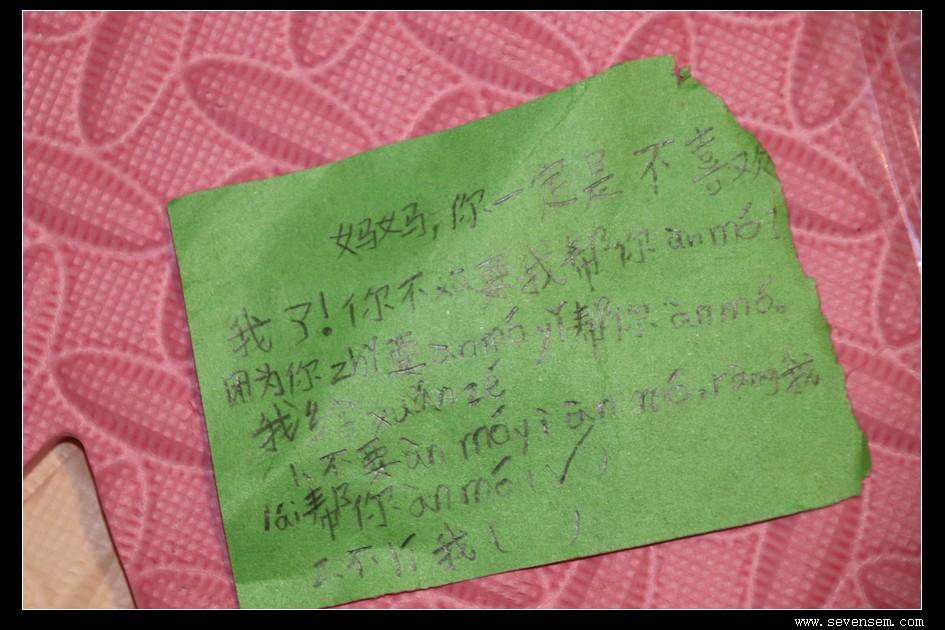 妈妈，你一定是不喜欢
我了！你不要我帮你ànmó！
因为你zhǐ要ànmóyǐ帮你ànmó。
我给xuǎnzé
1、不要ànmóyǐànmó，ràng我
lái帮你ànmó（✓）
2、不行我（ ）
www.sevensem.com